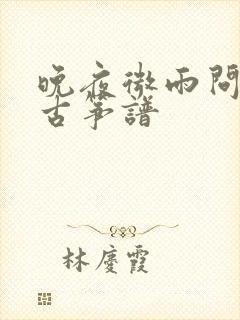 晚夜微雨問
古箏譜
林慶霞